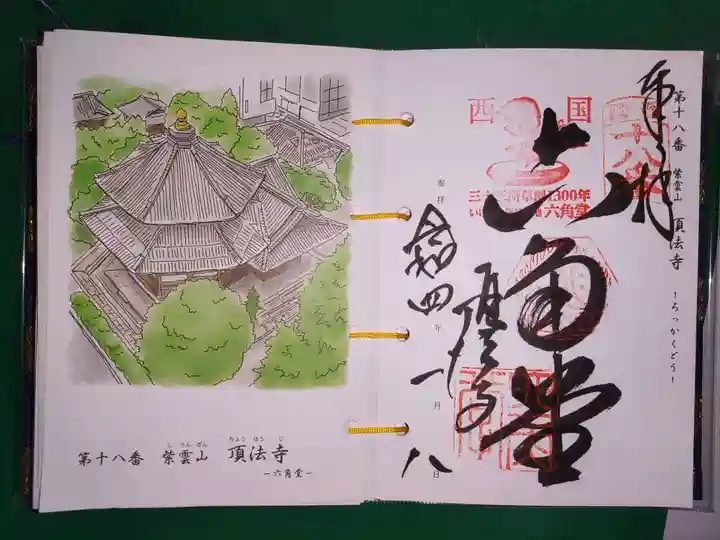 し うん ざん
ちょう ほう じ
第十八番 紫雲山 頂法寺
−六角堂−
第十八番 紫雲山 頂法寺 −ろっかくどう−
奉拝
西 国
1300年
六角堂
十八番
六角堂
頂法寺
参拝 令和四年一月八日